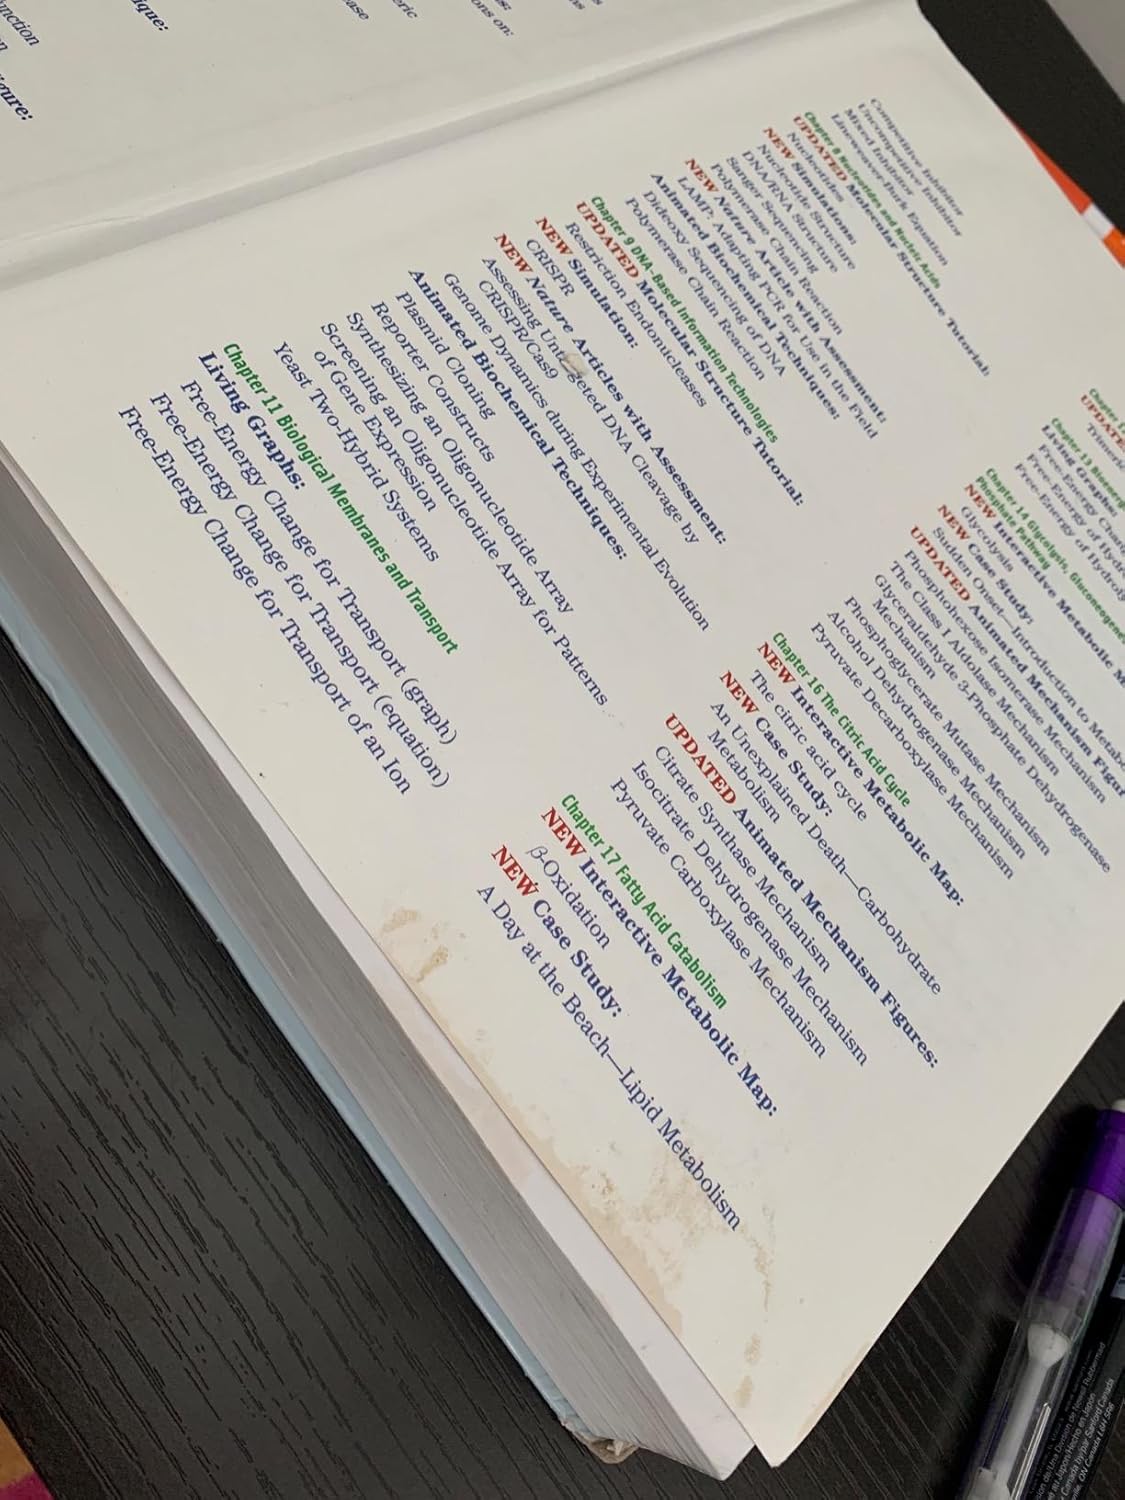 unction
ique:
Competitive Inhibitor
Uncompetitive Inhibitor
Mixed Inhibitor
Lineweaver-Burk Equation
Chapter 8 Nucleotides and Nucleic Acids
UPDATED Molecular Structure Tutorial:
Nucleotides
NEW Simulations:
Nucleotide Structure
DNA/RNA Structure
Sanger Sequencing
Polymerase Chain Reaction
NEW Nature Article with Assessment:
LAMP: Adapting PCR for Use in the Field
Animated Biochemical Techniques:
Dideoxy Sequencing of DNA
Polymerase Chain Reaction
Chapter 9 DNA-Based Information Technologies
UPDATED Molecular Structure Tutorial:
Restriction Endonucleases
NEW Simulation:
CRISPR
NEW Nature Articles with Assessment:
Assessing Untargeted DNA Cleavage by
CRISPR/Cas9
Genome Dynamics during Experimental Evolution
Animated Biochemical Techniques:
Plasmid Cloning
Reporter Constructs
Synthesizing an Oligonucleotide Array
Screening an Oligonucleotide Array for Patterns
of Gene Expression
Yeast Two-Hybrid Systems
Chapter 11 Biological Membranes and Transport
Living Graphs:
Free-Energy Change for Transport (graph)
Free-Energy Change for Transport (equation)
Free-Energy Change for Transport of an Ion
Chapter
UPDATE
Trimeric
Chapter 13 Bioenerg
Living Graphs:
Free-Energy Chan
Free-Energy of Hydro
Free-Energy of Hydroly
Chapter 14 Glycolysis, Gluconeogene
Phosphate Pathway
NEW Interactive Metabolic M
Glycolysis
NEW Case Study:
Sudden Onset—Introduction to Metab
UPDATED Animated Mechanism Figur
Phosphohexose Isomerase Mechanism
The Class I Aldolase Mechanism
Glyceraldehyde 3-Phosphate Dehydrogenase
Mechanism
Phosphoglycerate Mutase Mechanism
Alcohol Dehydrogenase Mechanism
Pyruvate Decarboxylase Mechanism
Chapter 16 The Citric Acid Cycle
NEW Interactive Metabolic Map:
The citric acid cycle
NEW Case Study:
An Unexplained Death—Carbohydrate
Metabolism
UPDATED Animated Mechanism Figures:
Citrate Synthase Mechanism
Isocitrate Dehydrogenase Mechanism
Pyruvate Carboxylase Mechanism
Chapter 17 Fatty Acid Catabolism
NEW Interactive Metabolic Map:
β-Oxidation
NEW Case Study:
A Day at the Beach—Lipid Metabolism